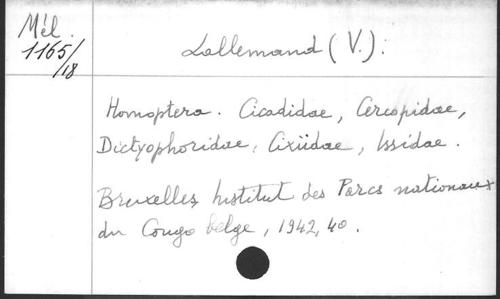 Mél.
1165/18
Lallemand (V.):
Homoptera. Cicadidae, Cercopidae,
Dictyophoridae, Cixiidae, Issidae.
Bruxelles, Institut des Parcs nationaux
du Congo belge, 1942, 40.